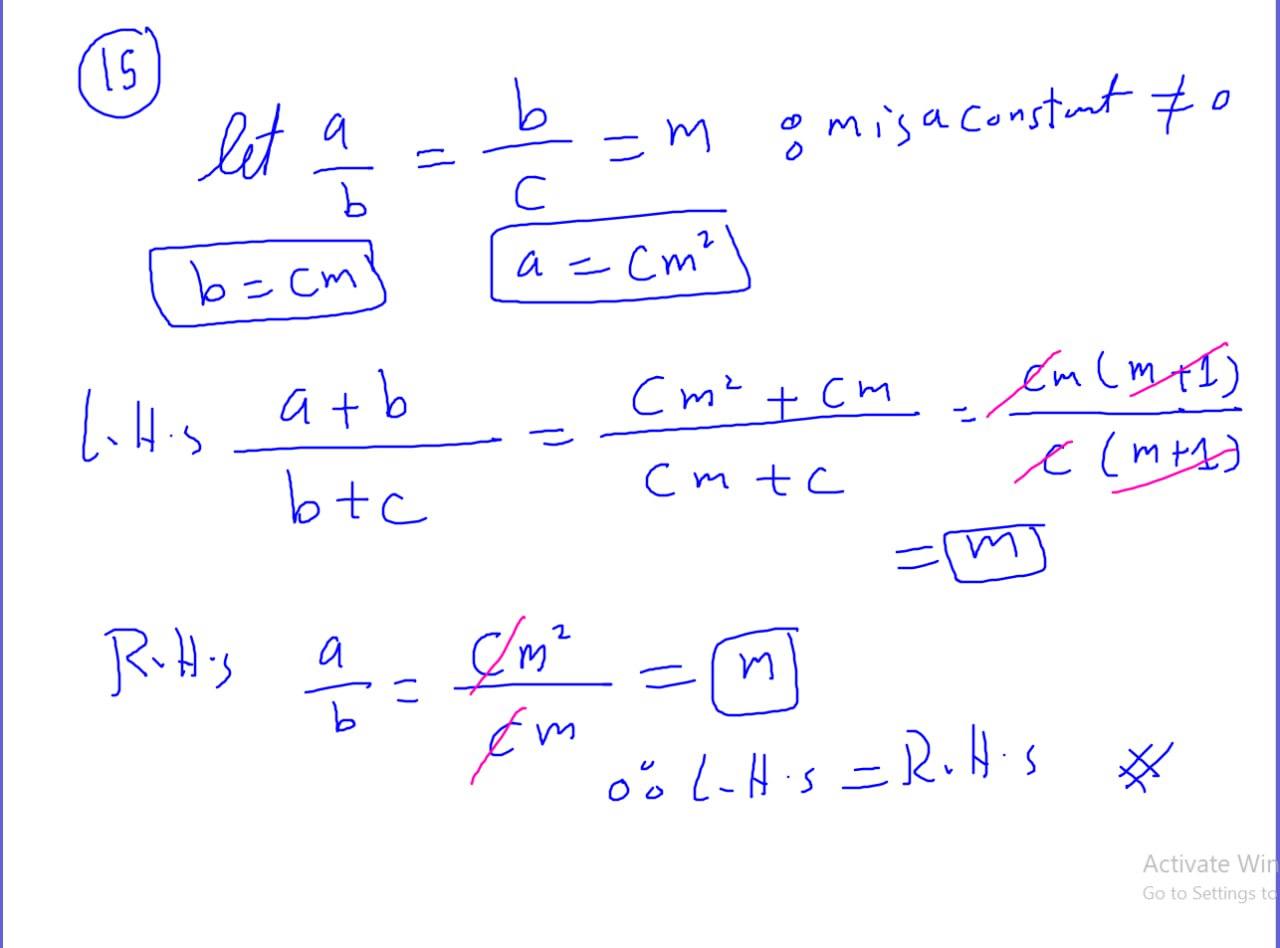 15
let a/b = b/c = m : m is a constant ≠ 0
b = cm a = cm²
L.H.s (a+b)/(b+c) = (cm² + cm)/(cm + c) = cm(m+1)/c(m+1)
= m
R.H.s a/b = cm²/cm = m
∴ L.H.s = R.H.s
Activate Win
Go to Settings to